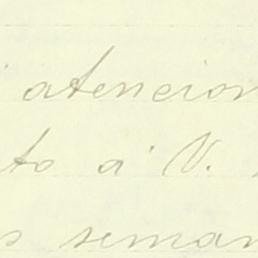 atencion
to á V.
s seman